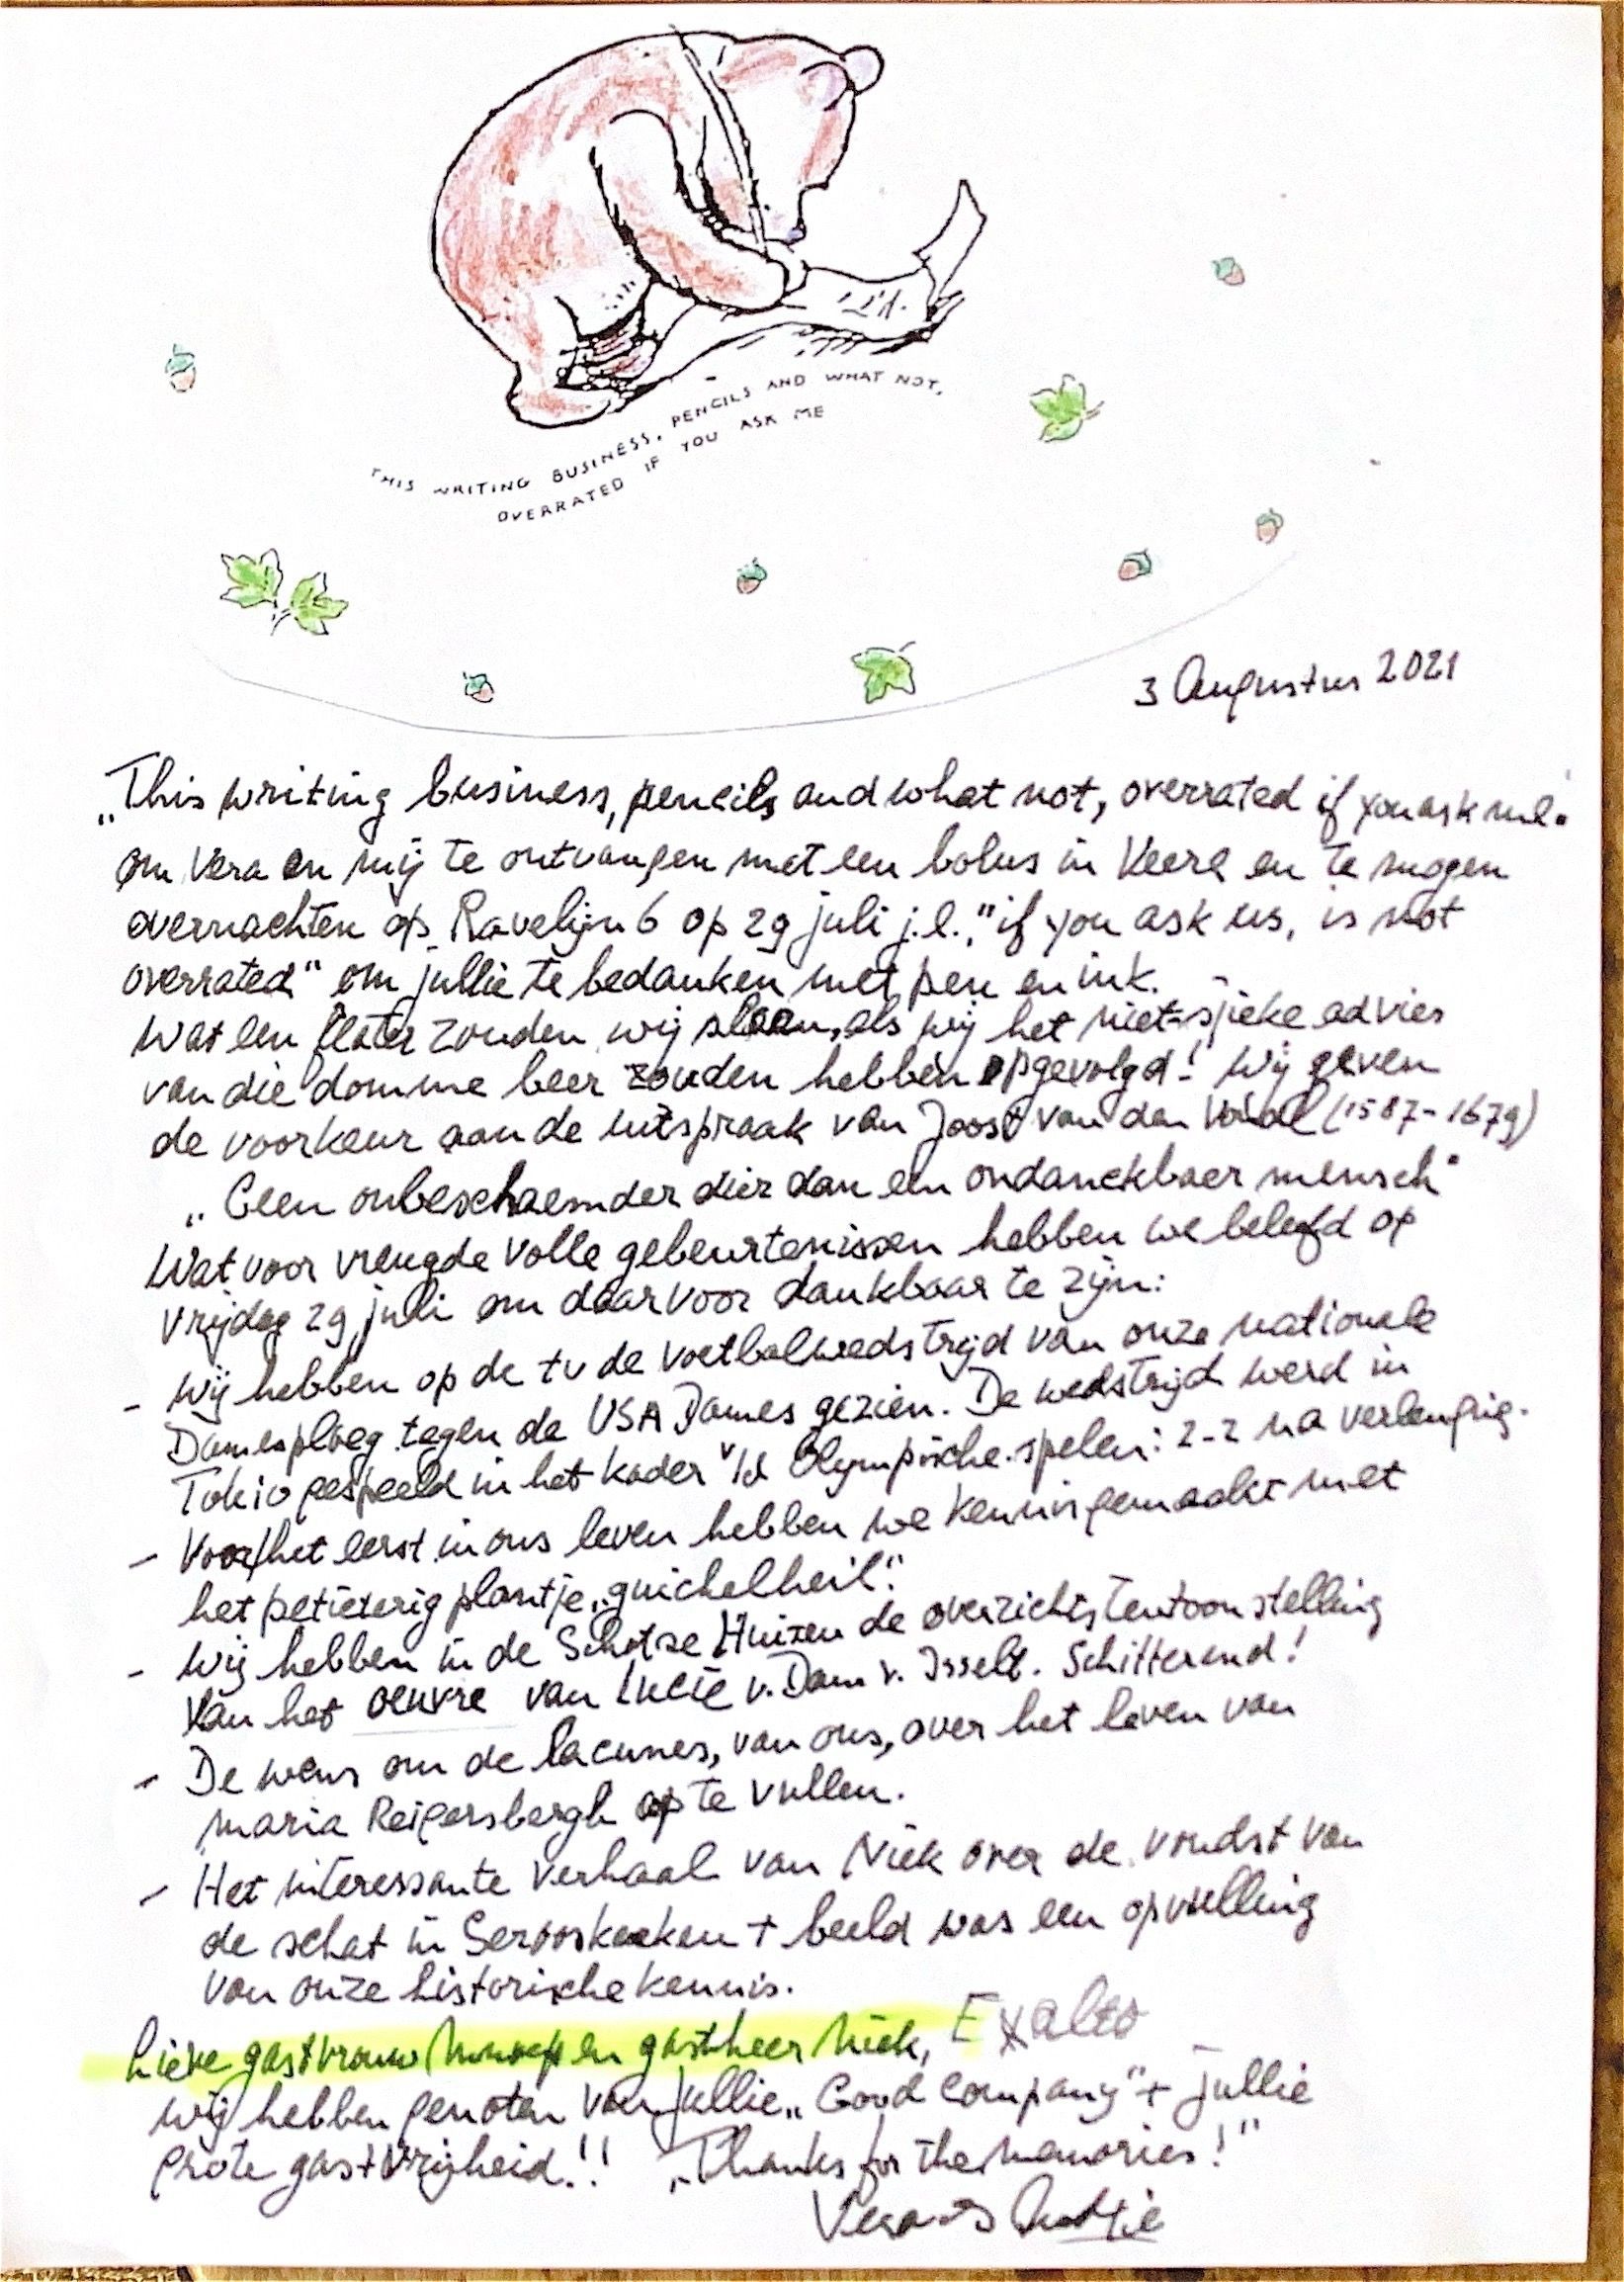 THIS WRITING BUSINESS. PENCILS AND WHAT NOT.
OVERRATED IF YOU ASK ME
3 Augustus 2021
„This writing business, pencils and what not, overrated if you ask me.
om Vera en mij te ontvangen met een bolus in Veere en te mogen
overnachten op Ravelijn 6 op 29 juli j.l., "if you ask us, is not
overrated" om jullie te bedanken met pen en ink.
Wat een flater zouden wij slaan, als wij het niet-sjieke advies
van die domme beer zouden hebben opgevolgd! Wij geven
de voorkeur aan de uitspraak van Joost van den Vondel (1587-1679)
„Geen onbeschaemder dier dan een ondanckbaer mensch"
Wat voor vreugde volle gebeurtenissen hebben we beleefd op
vrijdag 29 juli om daarvoor dankbaar te zijn:
- Wij hebben op de tv de voetbalwedstrijd van onze nationale
Damesploeg tegen de USA Dames gezien. De wedstrijd werd in
Tokio gespeeld in het kader v/d Olympische spelen: 2-2 na verlenging.
- Voor het eerst in ons leven hebben we kennis gemaakt met
het petieterig plantje „guichelheil".
- Wij hebben in de Schotse Huizen de overzichtstentoonstelling
van het oeuvre van Lucie v. Dam v. Isselt. Schitterend!
- De wens om de lacunes, van ons, over het leven van
Maria Reigersbergh op te vullen.
- Het interessante verhaal van Niek over de vondst van
de schat in Serooskerken + beeld was een opvulling
van onze historische kennis.
Lieve gastvrouw en gastheer Niek, Exalto
wij hebben genoten van jullie „Good company" + jullie
grote gastvrijheid!! „Thanks for the memories!"
Vera